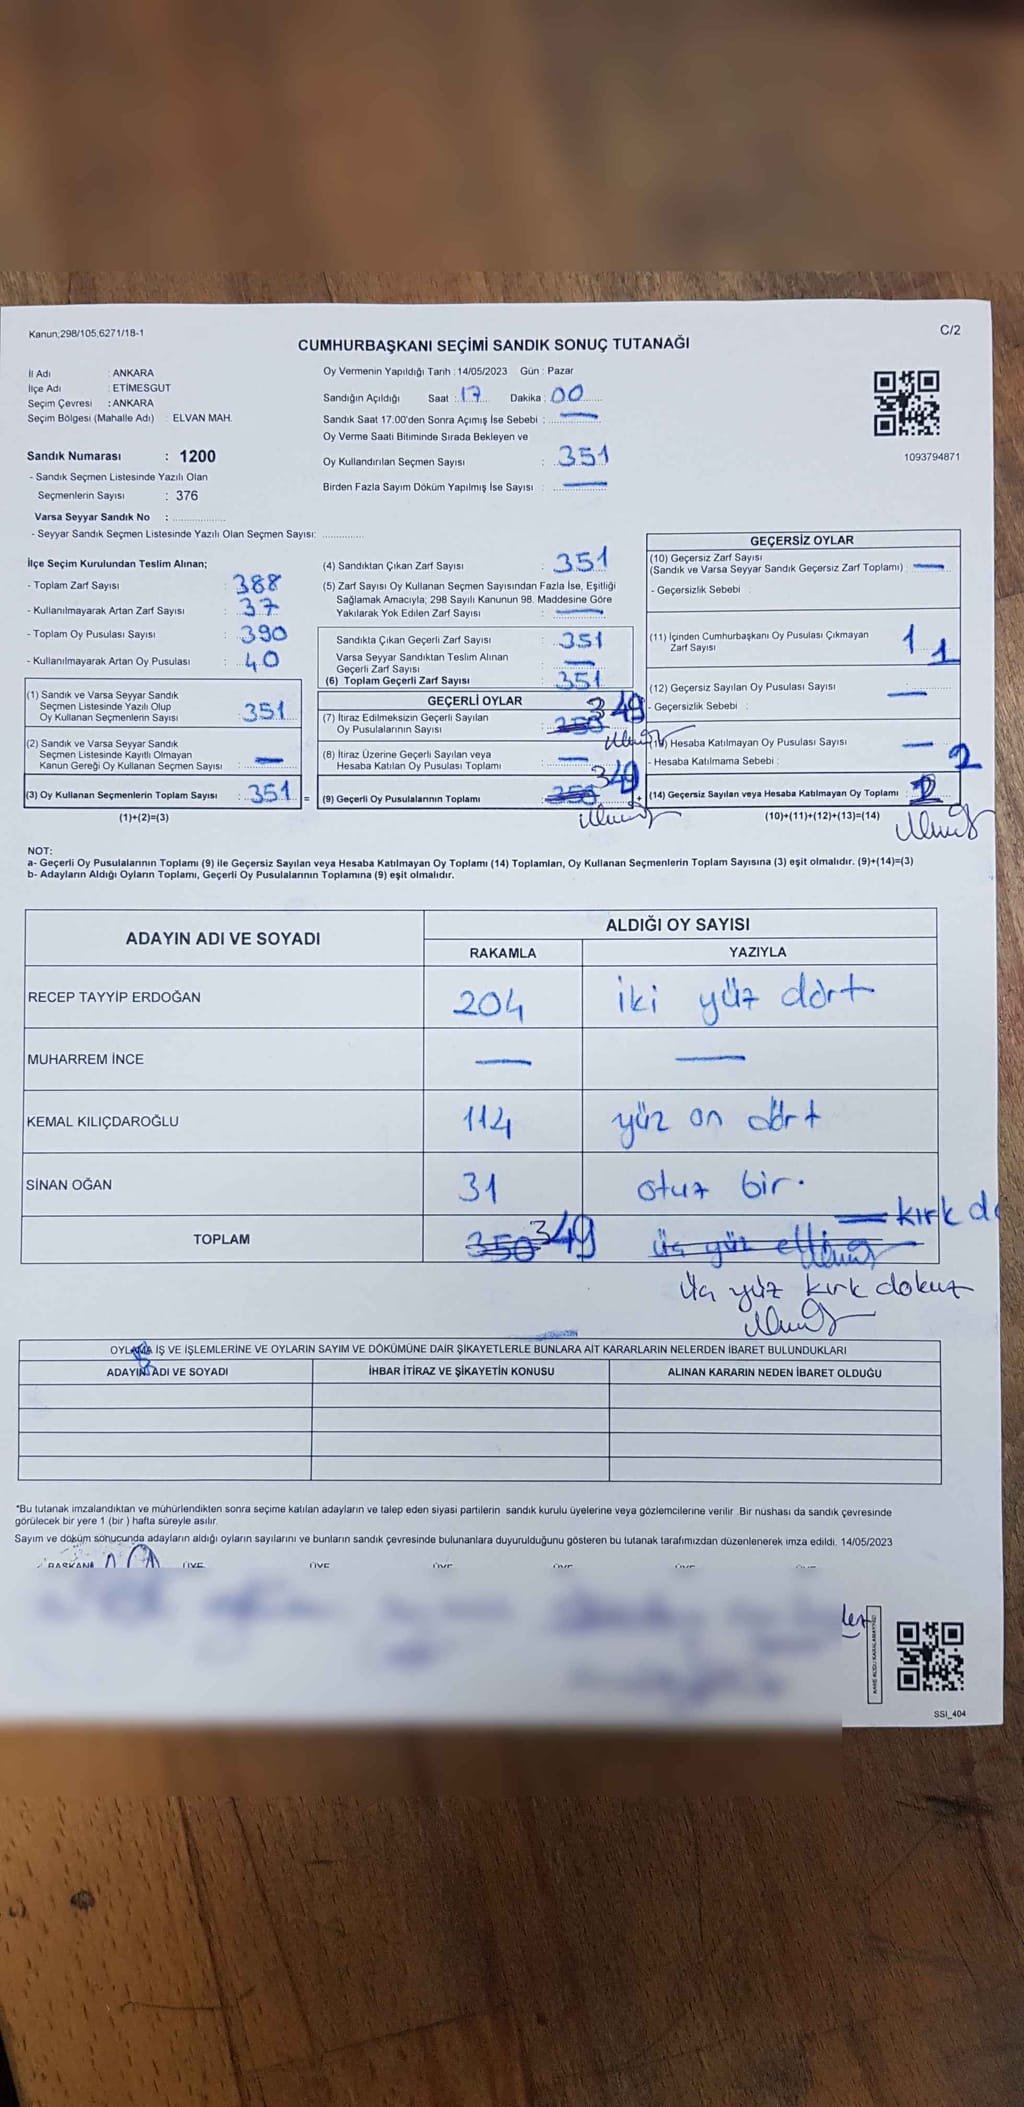 Kanun;298/105,6271/18-1
C/2
CUMHURBAŞKANI SEÇİMİ SANDIK SONUÇ TUTANAĞI
İl Adı : ANKARA
İlçe Adı : ETİMESGUT
Seçim Çevresi : ANKARA
Seçim Bölgesi (Mahalle Adı) : ELVAN MAH.
Sandık Numarası : 1200
- Sandık Seçmen Listesinde Yazılı Olan
Seçmenlerin Sayısı : 376
Varsa Seyyar Sandık No : ..................
- Seyyar Sandık Seçmen Listesinde Yazılı Olan Seçmen Sayısı: ..............
Oy Vermenin Yapıldığı Tarih : 14/05/2023 Gün : Pazar
Sandığın Açıldığı Saat : 17 Dakika : 00
Sandık Saat 17.00'den Sonra Açımış İse Sebebi : —
Oy Verme Saati Bitiminde Sırada Bekleyen ve
Oy Kullandırılan Seçmen Sayısı : 351
Birden Fazla Sayım Döküm Yapılmış İse Sayısı : —
1093794871
İlçe Seçim Kurulundan Teslim Alınan;
- Toplam Zarf Sayısı : 388
- Kullanılmayarak Artan Zarf Sayısı : 37
- Toplam Oy Pusulası Sayısı : 390
- Kullanılmayarak Artan Oy Pusulası : 40
(1) Sandık ve Varsa Seyyar Sandık
Seçmen Listesinde Yazılı Olup
Oy Kullanan Seçmenlerin Sayısı : 351
(2) Sandık ve Varsa Seyyar Sandık
Seçmen Listesinde Kayıtlı Olmayan
Kanun Gereği Oy Kullanan Seçmen Sayısı : —
(3) Oy Kullanan Seçmenlerin Toplam Sayısı : 351 =
(1)+(2)=(3)
(4) Sandıktan Çıkan Zarf Sayısı : 351
(5) Zarf Sayısı Oy Kullanan Seçmen Sayısından Fazla İse, Eşitliği
Sağlamak Amacıyla; 298 Sayılı Kanunun 98. Maddesine Göre
Yakılarak Yok Edilen Zarf Sayısı : —
Sandıkta Çıkan Geçerli Zarf Sayısı : 351
Varsa Seyyar Sandıktan Teslim Alınan
Geçerli Zarf Sayısı : —
(6) Toplam Geçerli Zarf Sayısı : 351
GEÇERLİ OYLAR
(7) İtiraz Edilmeksizin Geçerli Sayılan
Oy Pusulalarının Sayısı : 350 349
(8) İtiraz Üzerine Geçerli Sayılan veya
Hesaba Katılan Oy Pusulası Toplamı : —
(9) Geçerli Oy Pusulalarının Toplamı : 350 349 +
GEÇERSİZ OYLAR
(10) Geçersiz Zarf Sayısı
(Sandık ve Varsa Seyyar Sandık Geçersiz Zarf Toplamı) : —
- Geçersizlik Sebebi :
(11) İçinden Cumhurbaşkanı Oy Pusulası Çıkmayan
Zarf Sayısı 1 1
(12) Geçersiz Sayılan Oy Pusulası Sayısı : —
- Geçersizlik Sebebi :
Hesaba Katılmayan Oy Pusulası Sayısı : —
- Hesaba Katılmama Sebebi : 2
(14) Geçersiz Sayılan veya Hesaba Katılmayan Oy Toplamı : 2
(10)+(11)+(12)+(13)=(14)
NOT:
a- Geçerli Oy Pusulalarının Toplamı (9) ile Geçersiz Sayılan veya Hesaba Katılmayan Oy Toplamı (14) Toplamları, Oy Kullanan Seçmenlerin Toplam Sayısına (3) eşit olmalıdır. (9)+(14)=(3)
b- Adayların Aldığı Oyların Toplamı, Geçerli Oy Pusulalarının Toplamına (9) eşit olmalıdır.
ADAYIN ADI VE SOYADI
ALDIĞI OY SAYISI
RAKAMLA YAZIYLA
RECEP TAYYİP ERDOĞAN 204 iki yüz dört
MUHARREM İNCE — —
KEMAL KILIÇDAROĞLU 114 yüz on dört
SİNAN OĞAN 31 otuz bir.
kırk do
TOPLAM 350 349 üç yüz elli
üç yüz kırk dokuz
OYLAMA İŞ VE İŞLEMLERİNE VE OYLARIN SAYIM VE DÖKÜMÜNE DAİR ŞİKAYETLERLE BUNLARA AİT KARARLARIN NELERDEN İBARET BULUNDUKLARI
ADAYIN ADI VE SOYADI İHBAR İTİRAZ VE ŞİKAYETİN KONUSU ALINAN KARARIN NEDEN İBARET OLDUĞU
*Bu tutanak imzalandıktan ve mühürlendikten sonra seçime katılan adayların ve talep eden siyasi partilerin sandık kurulu üyelerine veya gözlemcilerine verilir. Bir nüshası da sandık çevresinde
görülecek bir yere 1 (bir ) hafta süreyle asılır.
Sayım ve döküm sonucunda adayların aldığı oyların sayılarını ve bunların sandık çevresinde bulunanlara duyurulduğunu gösteren bu tutanak tarafımızdan düzenlenerek imza edildi. 14/05/2023
BAŞKAN ÜYE ÜYE ÜYE ÜYE ÜYE ÜYE
SSI_404